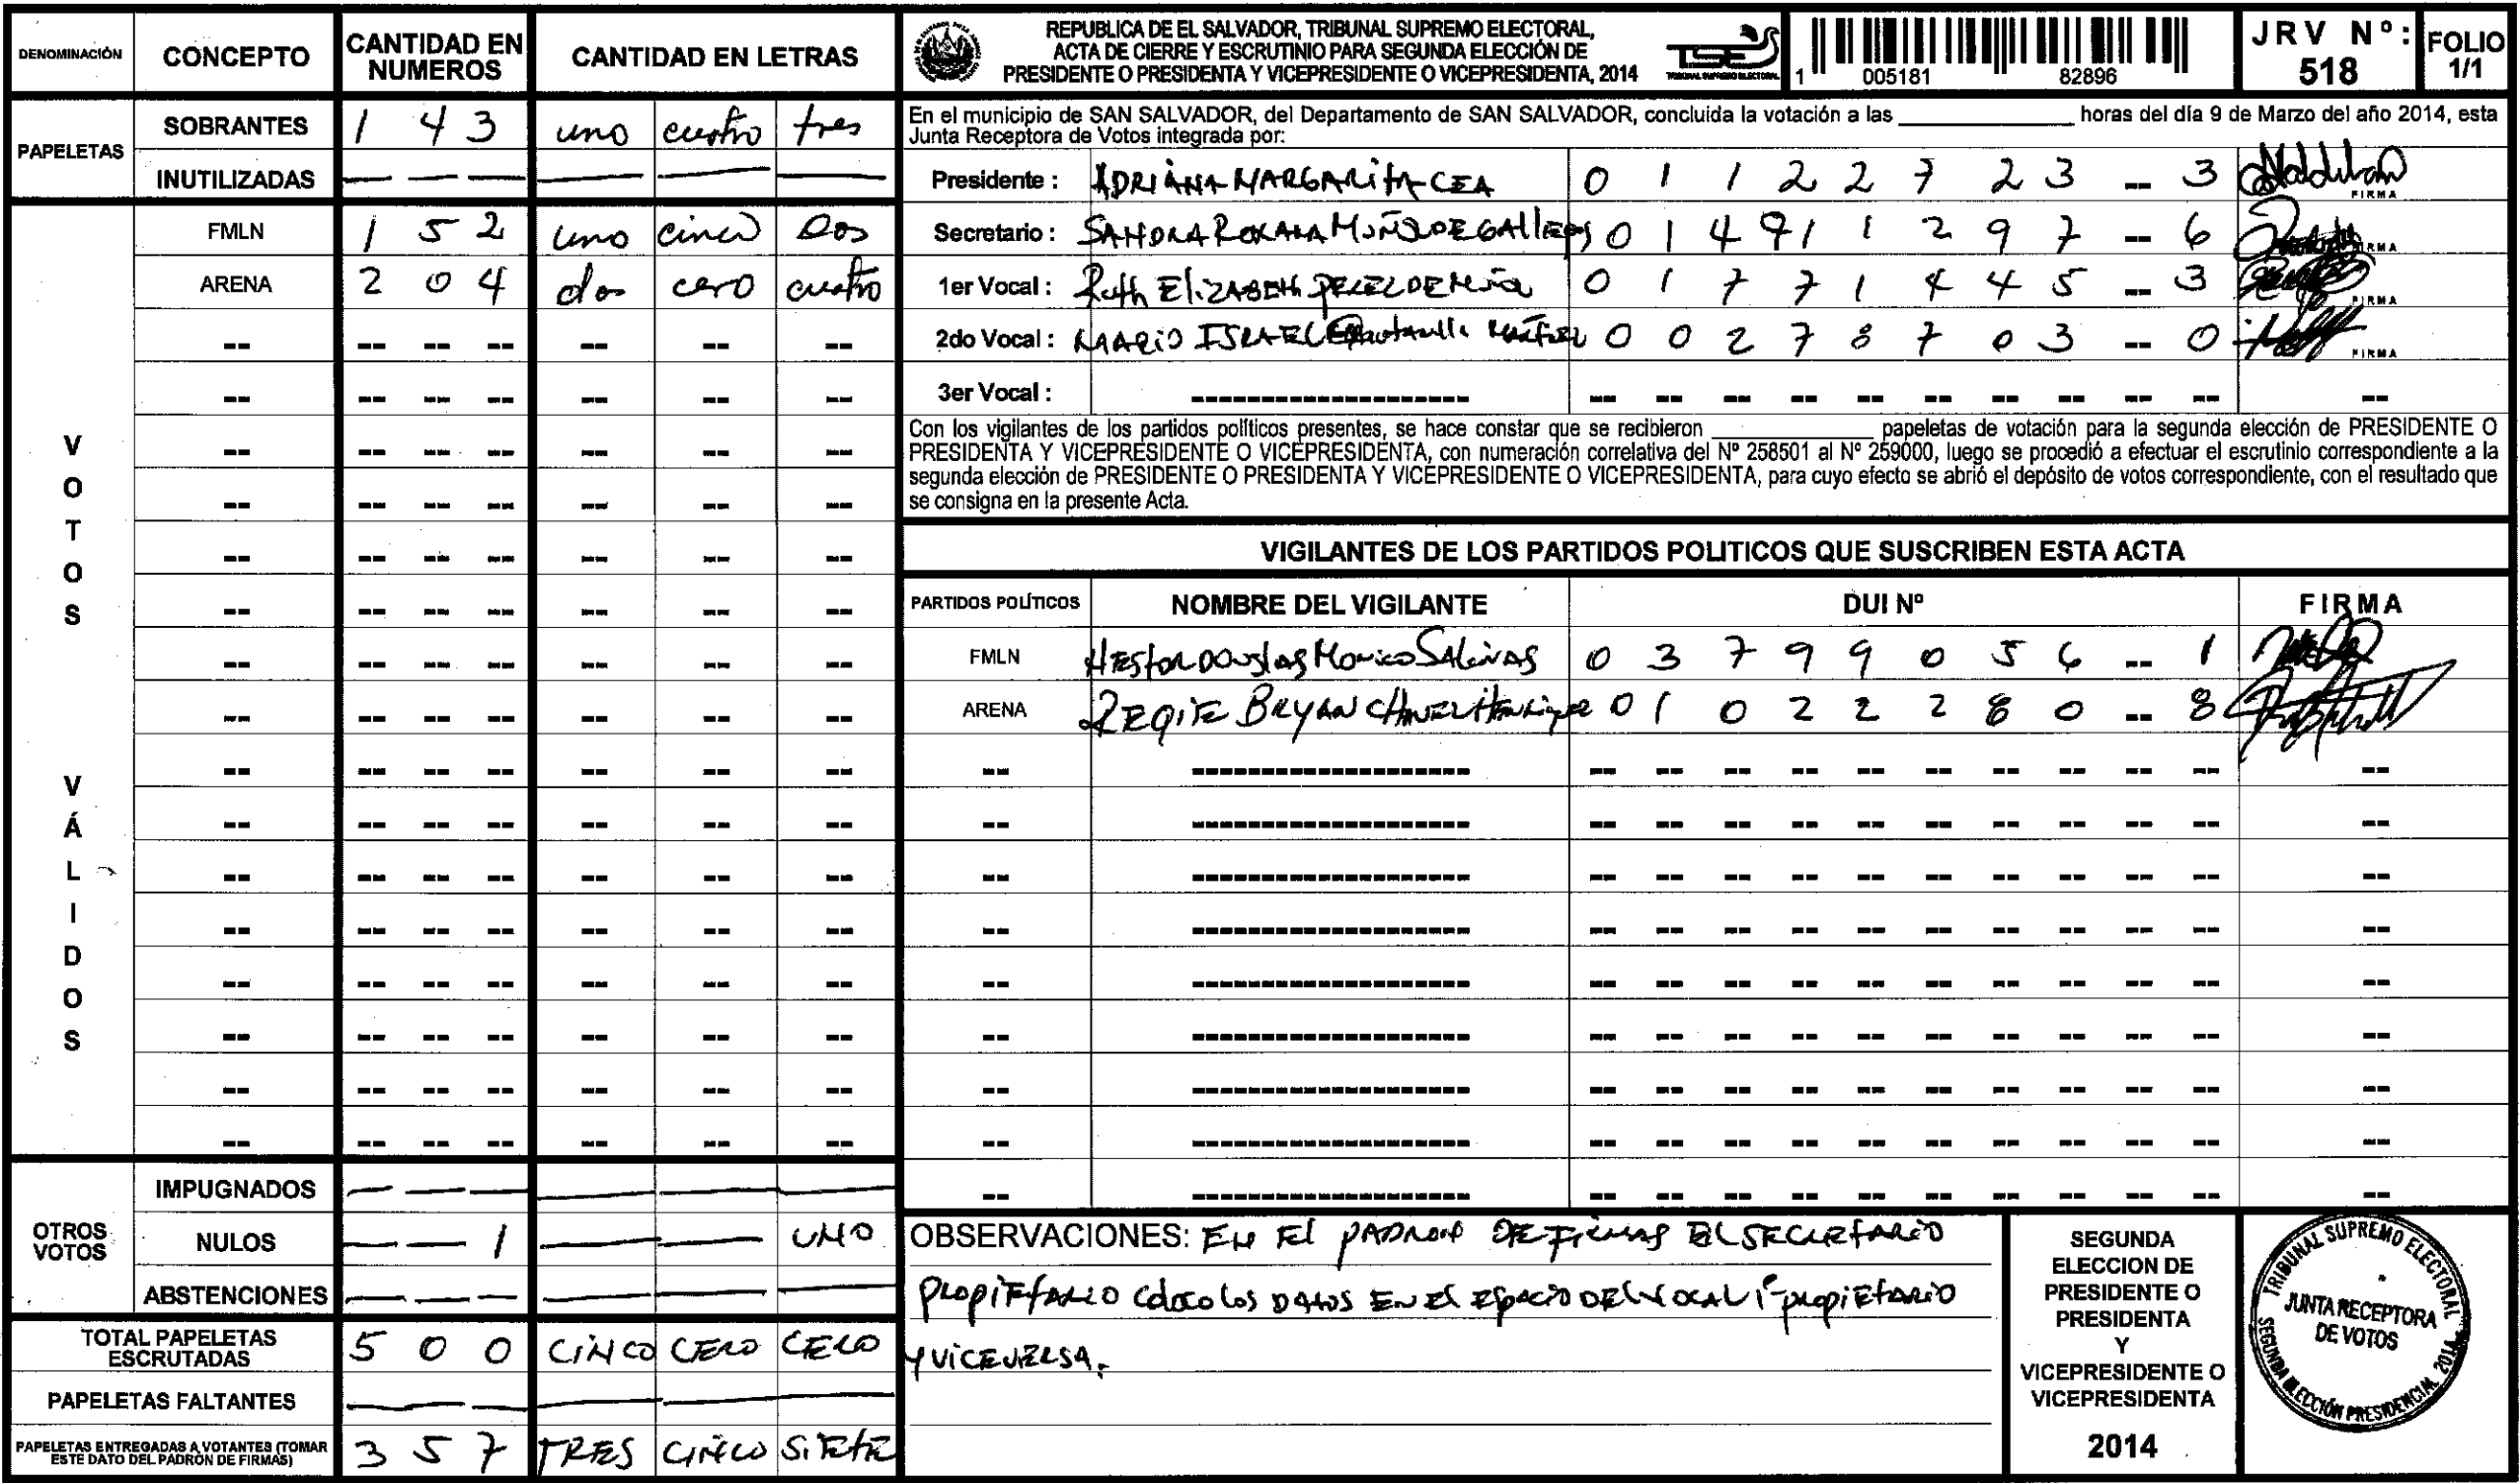 DENOMINACIÓN CONCEPTO CANTIDAD EN NUMEROS CANTIDAD EN LETRAS
PAPELETAS
SOBRANTES 1 4 3 uno cuatro tres
INUTILIZADAS — — — — — —
VOTOS VÁLIDOS
FMLN 1 5 2 uno cinco Dos
ARENA 2 0 4 dos cero cuatro
OTROS VOTOS
IMPUGNADOS — — — — — —
NULOS — — 1 — — UNO
ABSTENCIONES — — — — — —
TOTAL PAPELETAS ESCRUTADAS 5 0 0 CINCO CERO CERO
PAPELETAS FALTANTES — — — — — —
PAPELETAS ENTREGADAS A VOTANTES (TOMAR ESTE DATO DEL PADRÓN DE FIRMAS) 3 5 7 TRES CINCO SIETE
REPUBLICA DE EL SALVADOR, TRIBUNAL SUPREMO ELECTORAL,
ACTA DE CIERRE Y ESCRUTINIO PARA SEGUNDA ELECCIÓN DE
PRESIDENTE O PRESIDENTA Y VICEPRESIDENTE O VICEPRESIDENTA, 2014
TSE
TRIBUNAL SUPREMO ELECTORAL
1 005181 82896
JRV Nº: 518
FOLIO 1/1
En el municipio de SAN SALVADOR, del Departamento de SAN SALVADOR, concluida la votación a las ____________ horas del día 9 de Marzo del año 2014, esta
Junta Receptora de Votos integrada por:
Presidente : ADRIANA MARGARITA CEA 0 1 1 2 2 7 2 3 -- 3 FIRMA
Secretario : SANDRA ROXANA DE GALLEGOS 0 1 4 9 1 1 2 9 7 -- 6 FIRMA
1er Vocal : Ruth ELIZABETH 0 1 7 7 1 4 4 5 -- 3 FIRMA
2do Vocal : MARIO ISRAEL 0 0 2 7 8 7 0 3 -- 0 FIRMA
3er Vocal :
Con los vigilantes de los partidos políticos presentes, se hace constar que se recibieron ____________ papeletas de votación para la segunda elección de PRESIDENTE O
PRESIDENTA Y VICEPRESIDENTE O VICEPRESIDENTA, con numeración correlativa del Nº 258501 al Nº 259000, luego se procedió a efectuar el escrutinio correspondiente a la
segunda elección de PRESIDENTE O PRESIDENTA Y VICEPRESIDENTE O VICEPRESIDENTA, para cuyo efecto se abrió el depósito de votos correspondiente, con el resultado que
se consigna en la presente Acta.
VIGILANTES DE LOS PARTIDOS POLITICOS QUE SUSCRIBEN ESTA ACTA
PARTIDOS POLÍTICOS NOMBRE DEL VIGILANTE DUI Nº FIRMA
FMLN DOUGLAS MONICO SALINAS 0 3 7 9 9 0 5 6 -- 1
ARENA BRYAN 0 1 0 2 2 2 8 0 -- 8
OBSERVACIONES: EN EL PADRON DE FIRMAS EL SECRETARIO
PROPIETARIO COLOCO LOS DATOS EN EL ESPACIO DEL VOCAL 1º PROPIETARIO
Y VICEVERSA.
SEGUNDA
ELECCION DE
PRESIDENTE O
PRESIDENTA
Y
VICEPRESIDENTE O
VICEPRESIDENTA
2014
TRIBUNAL SUPREMO ELECTORAL
JUNTA RECEPTORA
DE VOTOS
SEGUNDA ELECCIÓN PRESIDENCIAL 2014